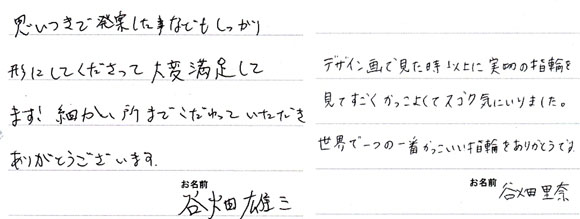 思いつきで発案した事などもしっかり
形にしてくださって大変満足して
ます! 細かい所までこだわっていただき
ありがとうございます。
お名前
谷畑雄三
デザイン画で見た時以上に実物の指輪を
見てすごくかっこよくてスゴク気にいりました。
世界で一つの一番かっこいい指輪をありがとうです
お名前 谷畑里奈